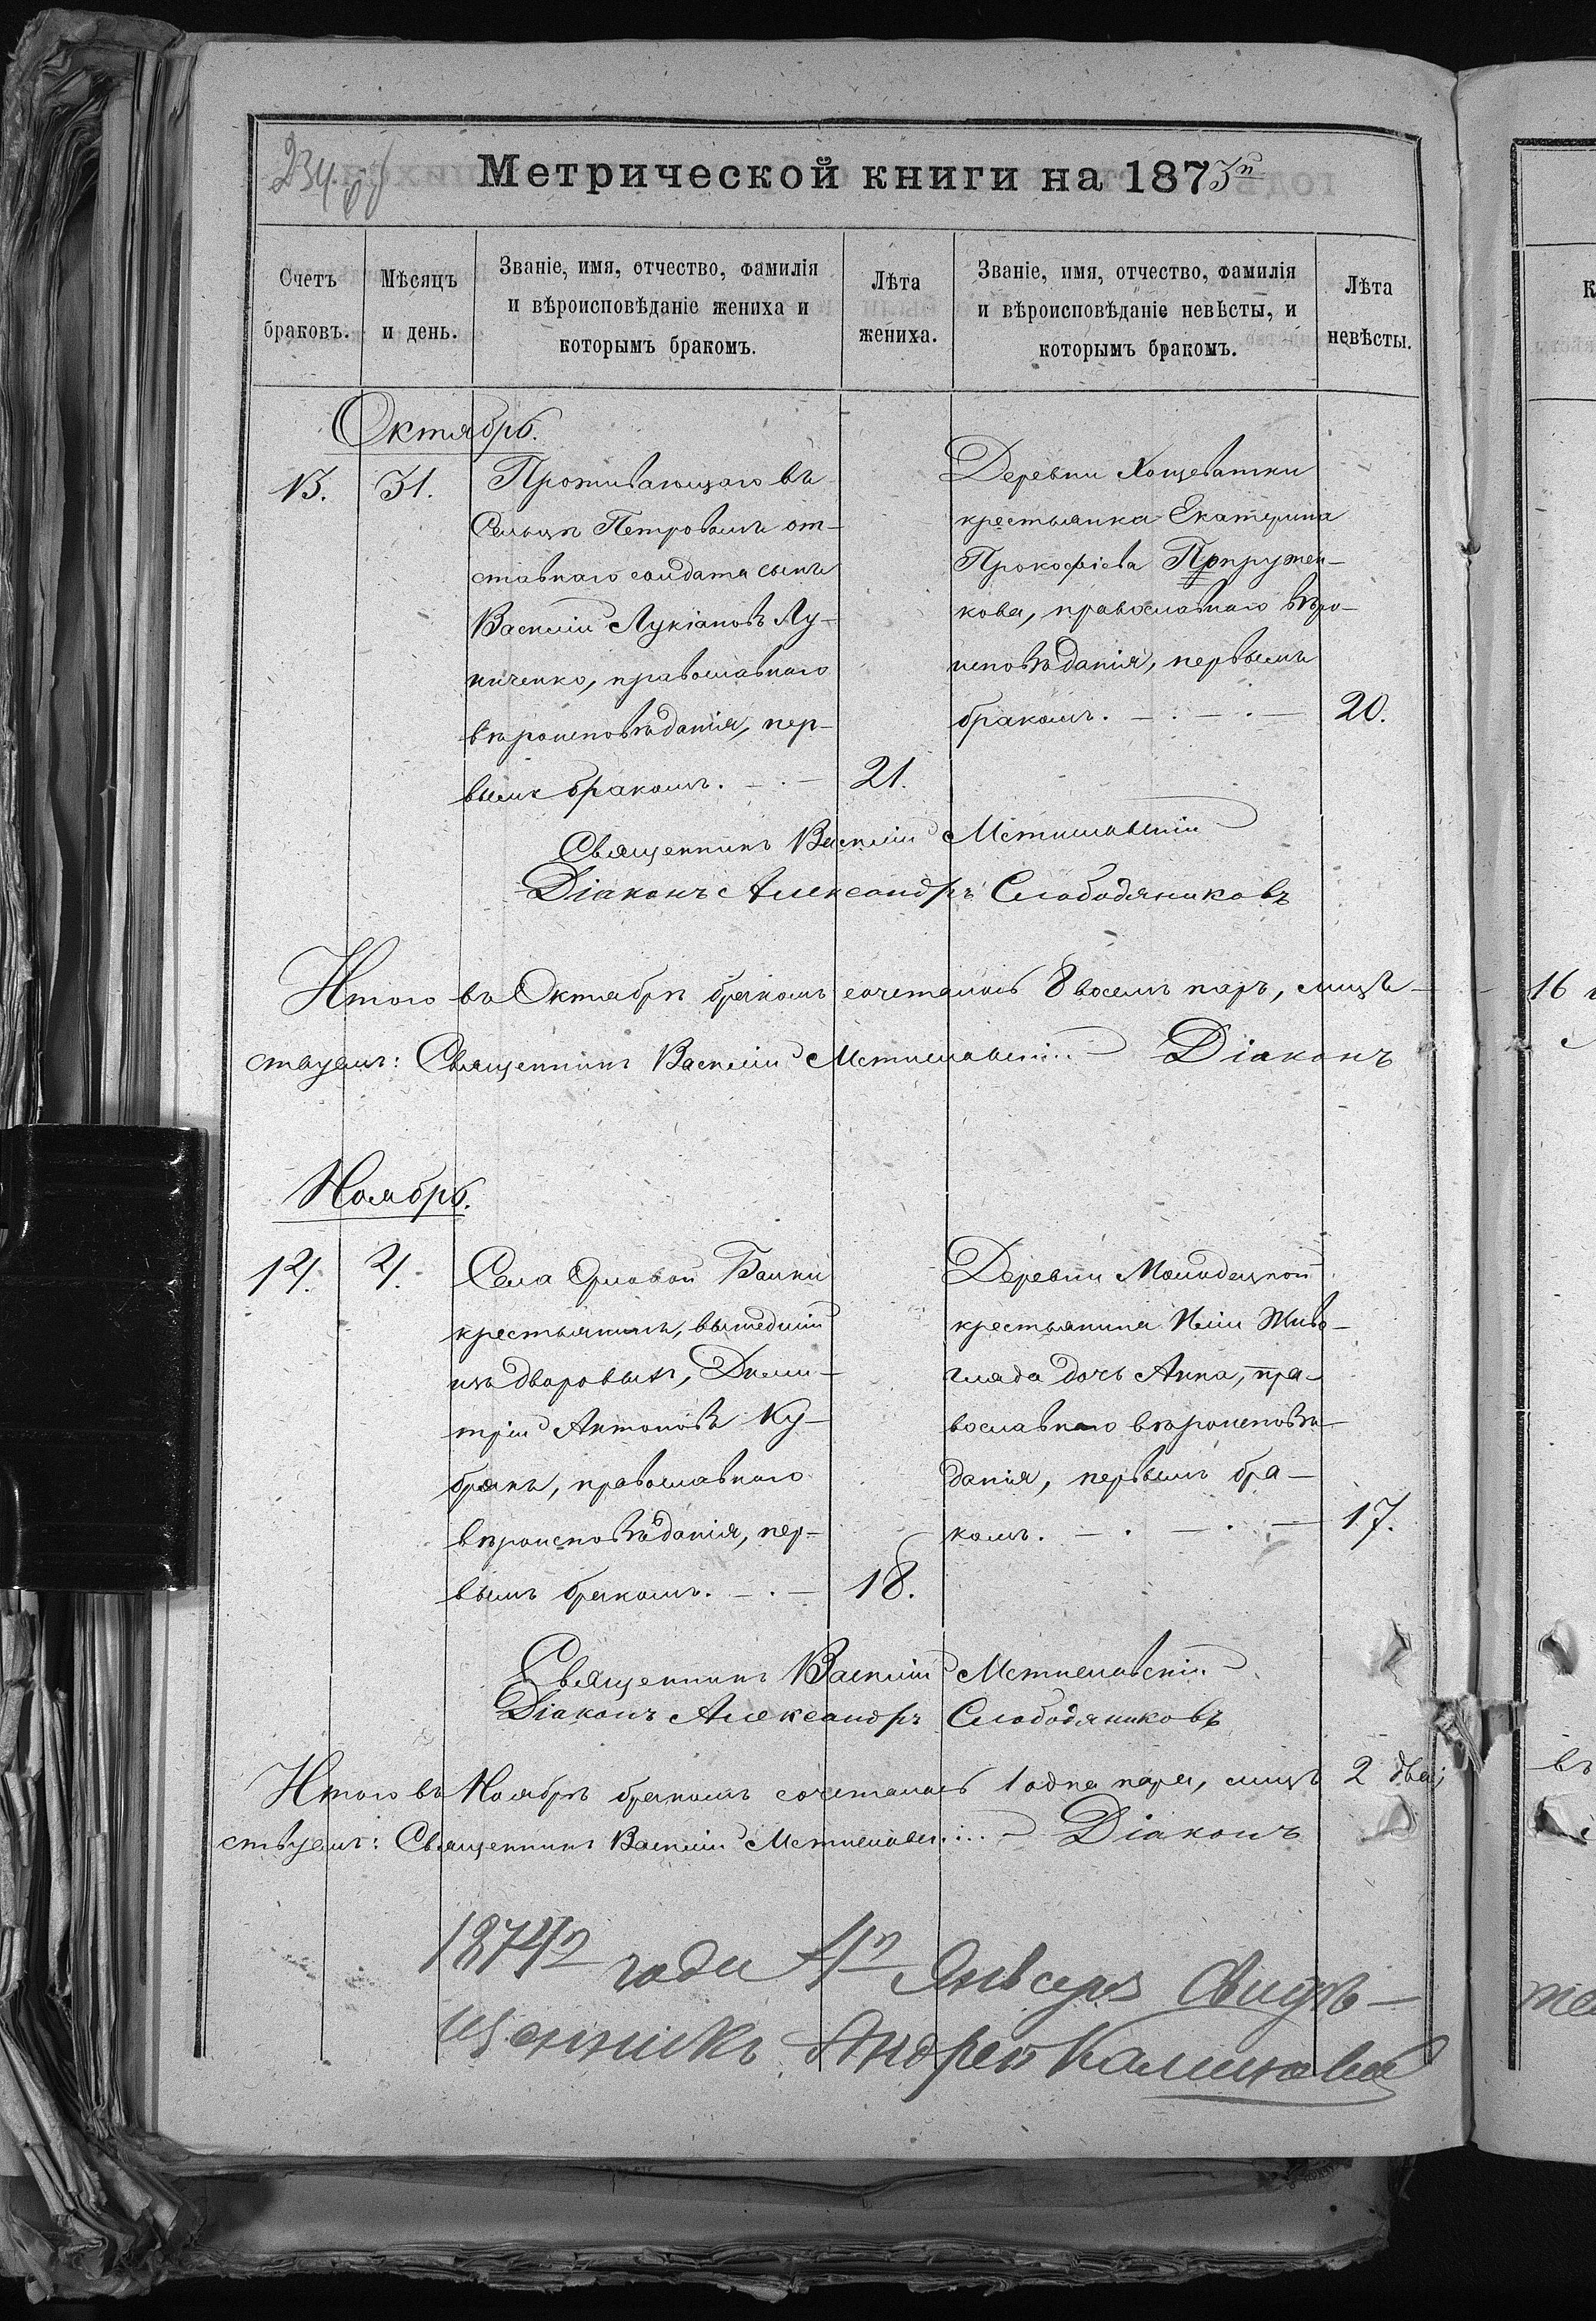 234 об
Метрической книги на 1873й
Счетъ браковъ.
Мѣсяцъ и день.
Званіе, имя, отчество, фамилія
и вѣроисповѣданіе жениха и
которымъ бракомъ.
Лѣта жениха.
Званіе, имя, отчество, фамилія
и вѣроисповѣданіе невѣсты, и
которымъ бракомъ.
Лѣта невѣсты.
Октябрь.
13.
31.
Проживающаго въ
Сельцѣ Петровомъ от-
ставнаго солдата сынъ
Василій Лукіановъ Лу-
ниченко, православнаго
вѣроисповѣданія, пер-
вымъ бракомъ. — . —
21.
Деревни Хощеватки
крестьянка Екатерина
Прокофіева Попружен-
кова, православнаго вѣро-
исповѣданія, первымъ
бракомъ. — . — . —
20.
Священникъ Василій Мстиславскій
Діаконъ Александръ Слободяниковъ
Итого въ Октябрѣ бракомъ сочеталось 8 восемь паръ, лицъ —
ствуемъ: Священникъ Василій Мстиславскій Діаконъ
Ноябрь.
14.
4.
Села Орловой Балки
крестьянинъ, вышедшій
изъ дворовыхъ, Дими-
трій Антоновъ Ку-
бракъ, православнаго
вѣроисповѣданія, пер-
вымъ бракомъ. — . —
18.
Деревни Молодецкой
крестьянина Иліи Живо-
гляда дочь Анна, пра-
вославнаго вѣроисповѣ-
данія, первымъ бра-
комъ. — . — . —
17.
Священникъ Василій Мстиславскій
Діаконъ Александръ Слободяниковъ
Итого въ Ноябрѣ бракомъ сочеталось 1 одна пара, лицъ 2 два;
ствуемъ: Священникъ Василій Мстиславскій Діаконъ
1874го года 4го Января Свидѣ-
щенникъ Андрей
16
въ
те